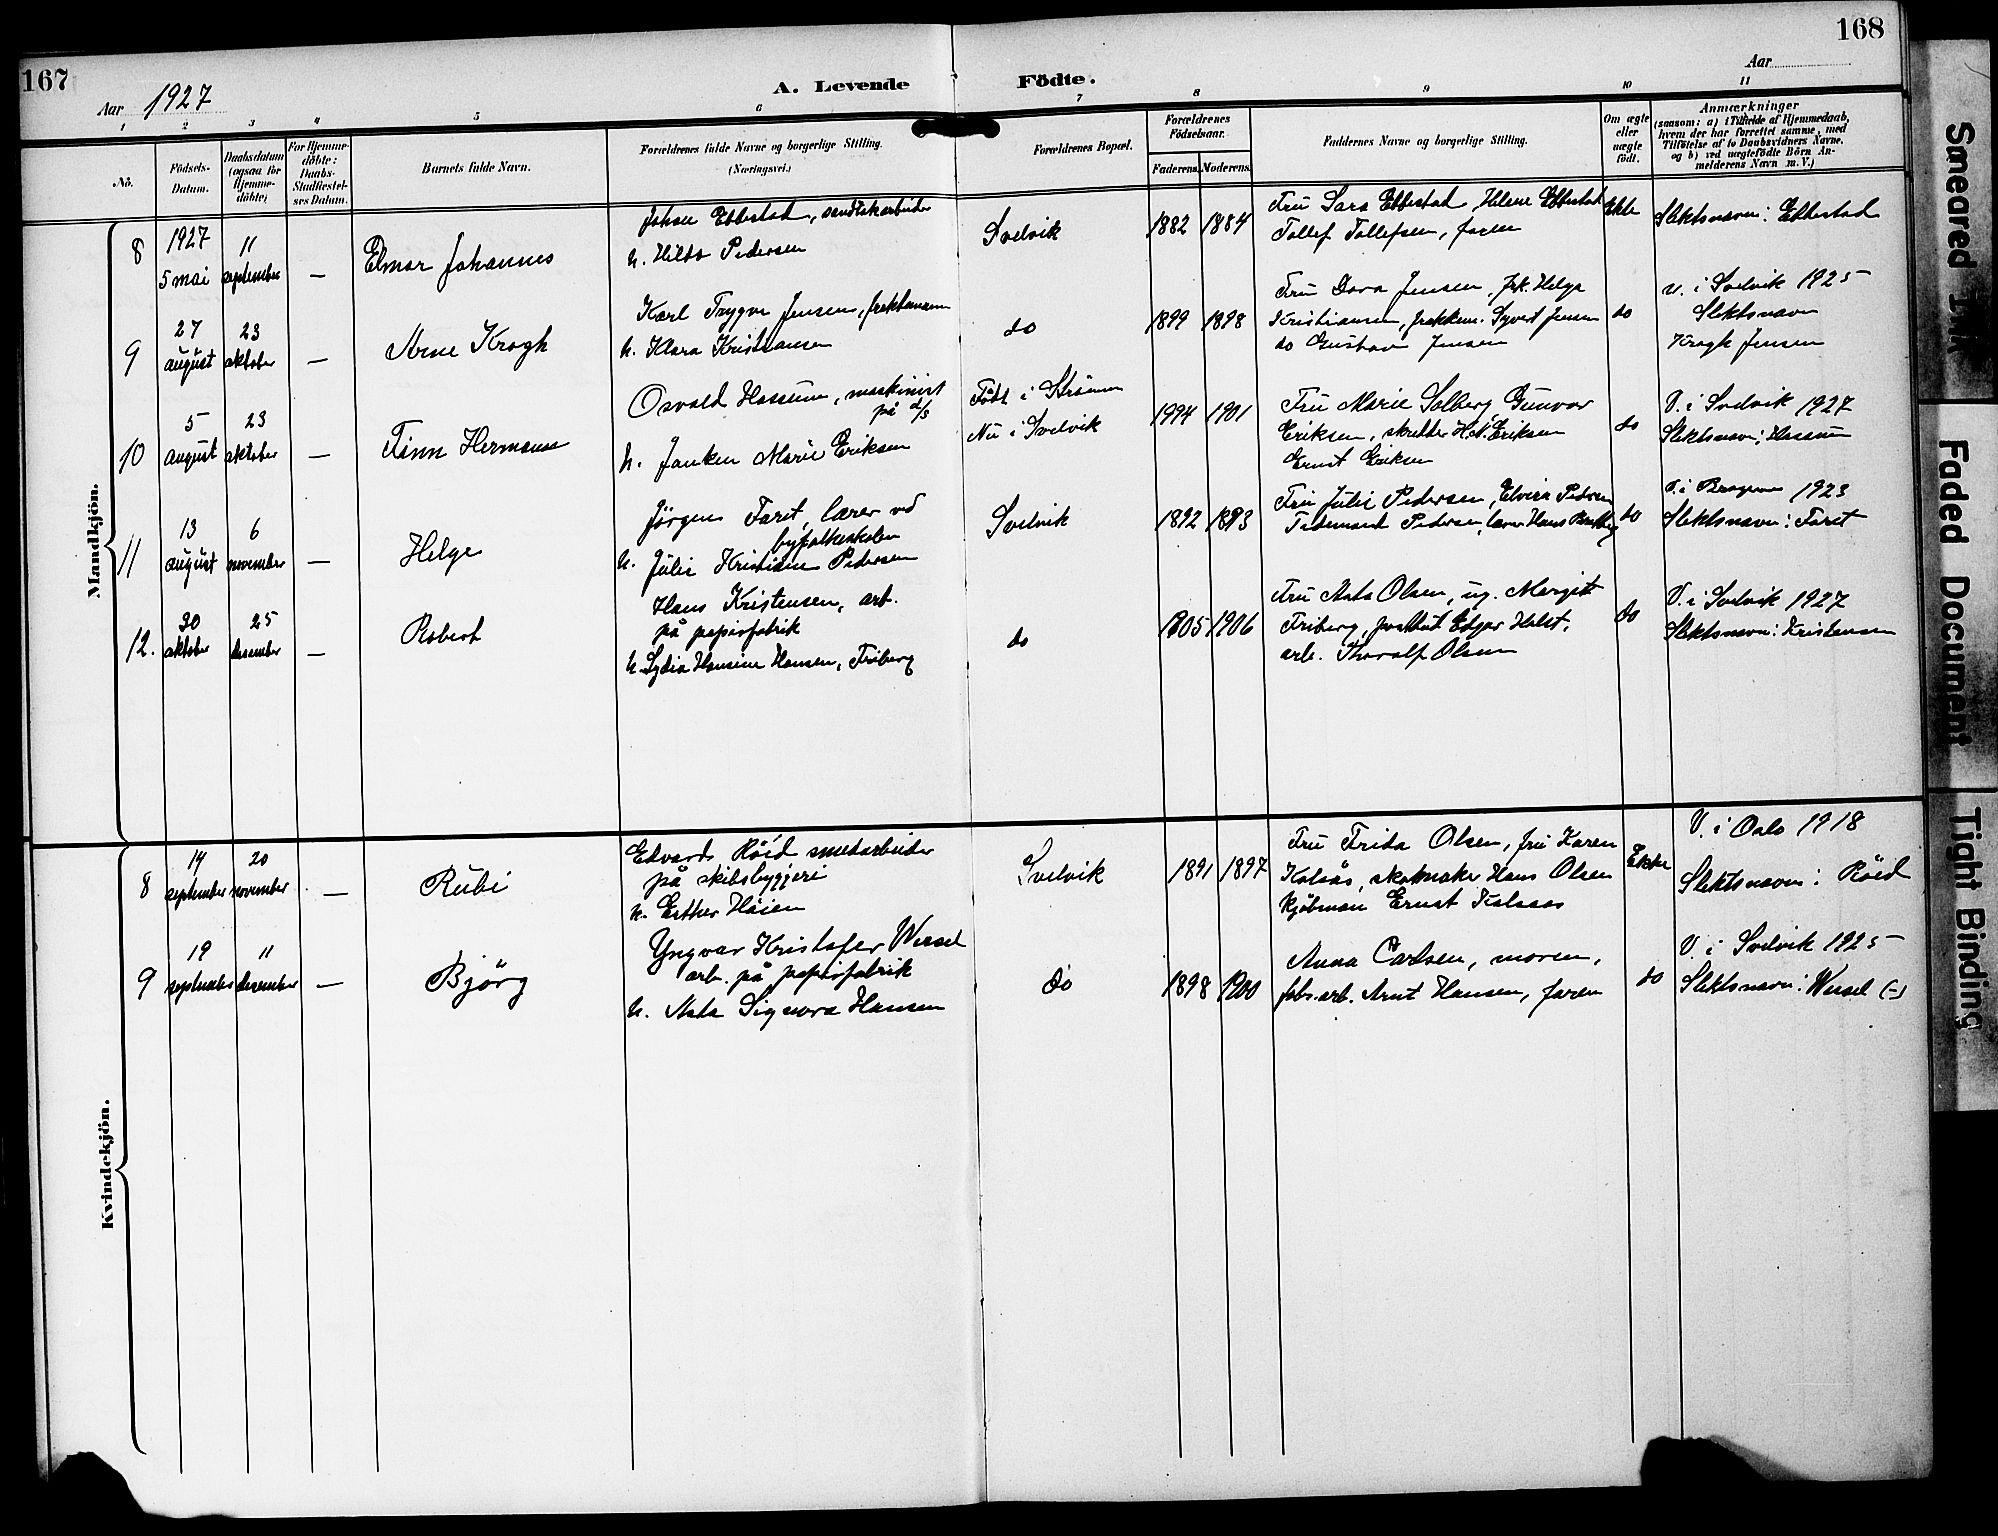 167
168
Aar 1927
A. Levende Födte.
Aar
1 2 3 4 5 6 7 8 9 10 11
No.
Födsels-Datum.
Daabsdatum (ogsaa for Hjemme-döbte)
For Hjemme-döbte: Daabs-Stadfæstel-ses Datum.
Barnets fulde Navn.
Forældrenes fulde Navne og borgerlige Stilling.
(Næringsvei.)
Forældrenes Bopæl.
Forældrenes Födselsaar.
Faderens. Moderens.
Faddernes Navne og borgerlige Stilling.
Om ægte eller uægte födt.
Anmærkninger
(saasom: a) i Tilfælde af Hjemmedaab, hvem der har forrettet samme, med Tilföielse af to Daabsvidners Navne, og b) ved uægtefödte Börn An-melderens Navn m. V.)
Mandkjön.
8 1927 5 mai 11 september — Elmar Johannes
Johan Ebbestad,
h. Hilda Pedersen
Svelvik 1882 1884
Fru Sara Ebbestad, Helene Ebbestad
Tollef Tollefsen, faren
Ekte
Slektsnavn: Ebbestad
9 27 august 23 oktober — Arne Krogh
Karl Trygve Jensen, fraktemann
h. Klara Kristiansen
do 1899 1898
Fru Dora Jensen, frk. Helga
Kristiansen, fraktem. Syvert Jensen
do Gustav Jensen
do
V. i Svelvik 1925
Slektsnavn
Krogh Jensen
10 5 august 23 oktober — Finn Herman
Osvald Hassum, maskinist
på d/s
h. Janken Marie Eriksen
Födt i Strömm
Nu i Svelvik
1994 1901
Fru Marie Solberg, Gunvor
Eriksen, skredder H.N. Eriksen
Ernst Eriksen
do
V. i Svelvik 1927
Slektsnavn: Hassum
11 13 august 6 november — Helge
Jörgen Faret, lærer ved
byfolkeskolen
h. Julie Kristine Pedersen
Svelvik 1892 1893
Fru Julie Pedersen, Elvira Pedersen
Tidemand Pedersen, lærer Hans
do
V. i Bragernes 1923
Slektsnavn: Faret
12. 30 oktober 25 desember — Robert
Hans Kristensen, arb.
på papirfabrik
h. Lydia Hansine Hansen, Friberg
do 1905 1906
Fru Asta Olsen, ug. Margit
Friberg, postbud Edgar Holst,
arb. Thoralf Olsen
do
V. i Svelvik 1927
Slektsnavn: Kristensen
Kvindekjön.
8 14 september 20 november — Rubi
Edvard Röed, smedarbeider
på skibsbyggeri
h. Esther Höien
Svelvik 1891 1897
Fru Frida Olsen, fru Karen
Kolsås, skomaker Hans Olsen
kjöbman Ernst Kolsaas
Ekte
V. i Oslo 1918
Slektsnavn: Röed
9 19 september 11 desember — Björg
Yngvar Kristofer Wessel
arb. på papirfabrik
h. Asta Signora Hansen
do 1898 1900
Anna Carlsen, moren,
fabr.arb. Arnt Hansen, faren
do
V. i Svelvik 1925
Slektsnavn: Wessel (-)
Smeared Ink
Faded Document
Tight Binding